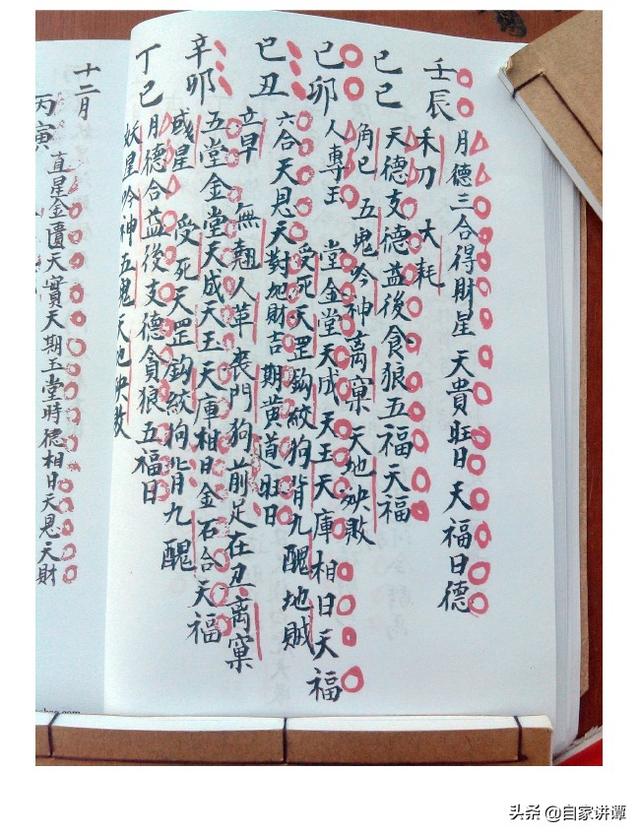 壬辰
月德三合得財星天貴旺日天福日德
禾刀 大耗
己巳
天德支德益後食狼五福天福
角已 五鬼吟神离窠天地殃敗
己卯
人專玉堂金堂天成天玉天庫相日天福
受死天罡鈎絞狗背九醜地賊
己丑
六合天恩天對地財吉期黄道旺日
立早 無翹人革喪門狗前足在丑离窠
辛卯
五堂金堂天成天玉天庫相日金石合天福
或星 受死天罡鈎絞狗背九醜
丁巳
月德合益後支德貪狼五福日
妖星吟神五鬼天地殃敗
十二月
丙寅
直星金匱天寳天期玉堂時德相日天恩天財
头条 @自家讲谭